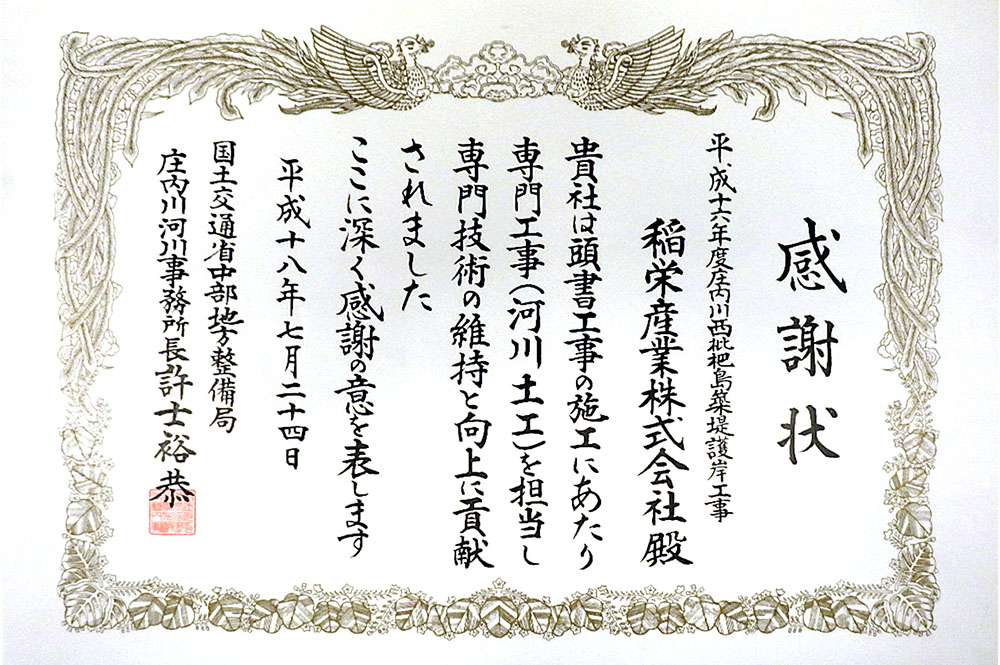 感謝状
平成十六年度庄内川西枇杷島築堤護岸工事
稲栄産業株式会社殿
貴社は頭書工事の施工にあたり
専門工事（河川土工）を担当し
専門技術の維持と向上に貢献
されました
ここに深く感謝の意を表します
平成十八年七月二十四日
国土交通省中部地方整備局
庄内川河川事務所長許士裕恭